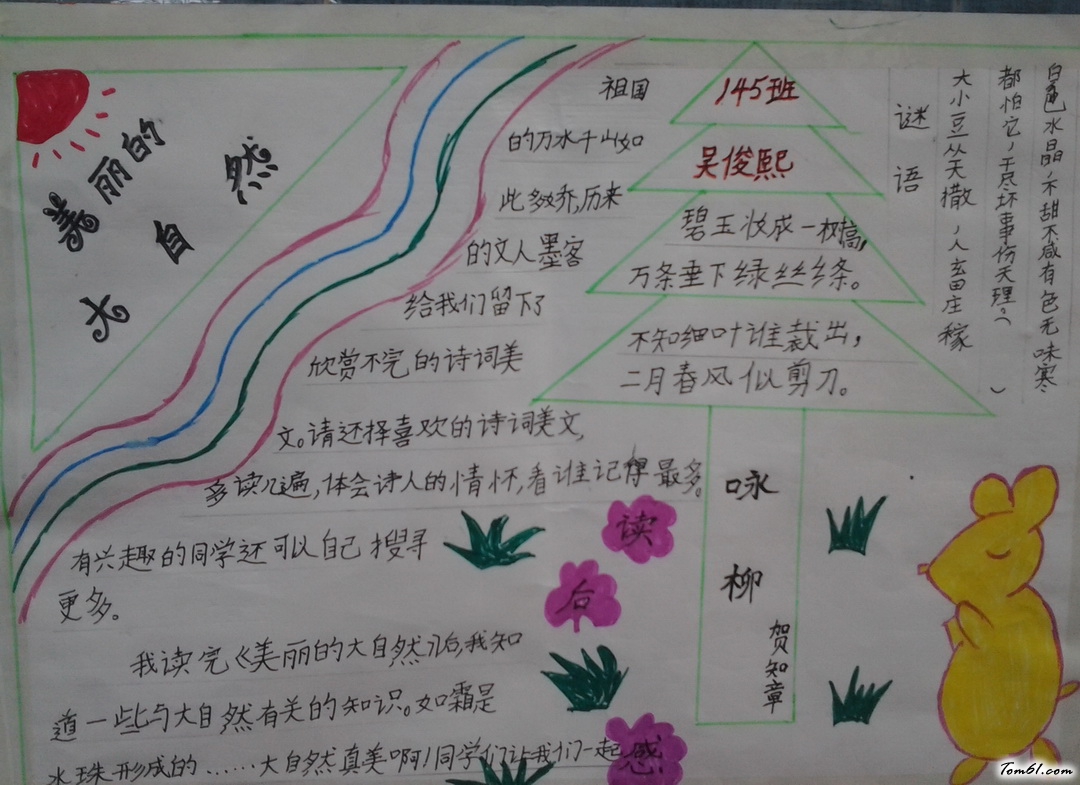 美丽的
大自然
祖国
的万水千山如
此多娇,历来
的文人墨客
给我们留下了
欣赏不完的诗词美
文。请还择喜欢的诗词美文,
多读几遍,体会诗人的情怀,看谁记得最多。
有兴趣的同学还可以自己搜寻
更多。
我读完《美丽的大自然》后,我知
道一些与大自然有关的知识。如霜是
水珠形成的……大自然真美啊!同学们让我们一起
读
后
感
145班
吴俊熙
碧玉妆成一树高,
万条垂下绿丝绦。
不知细叶谁裁出,
二月春风似剪刀。
咏
柳
贺知章
谜语
大小豆从天撒,人畜庄稼
都怕它,干尽坏事伤天理。()
白色水晶,不甜不咸有色无味寒
Tom61.com